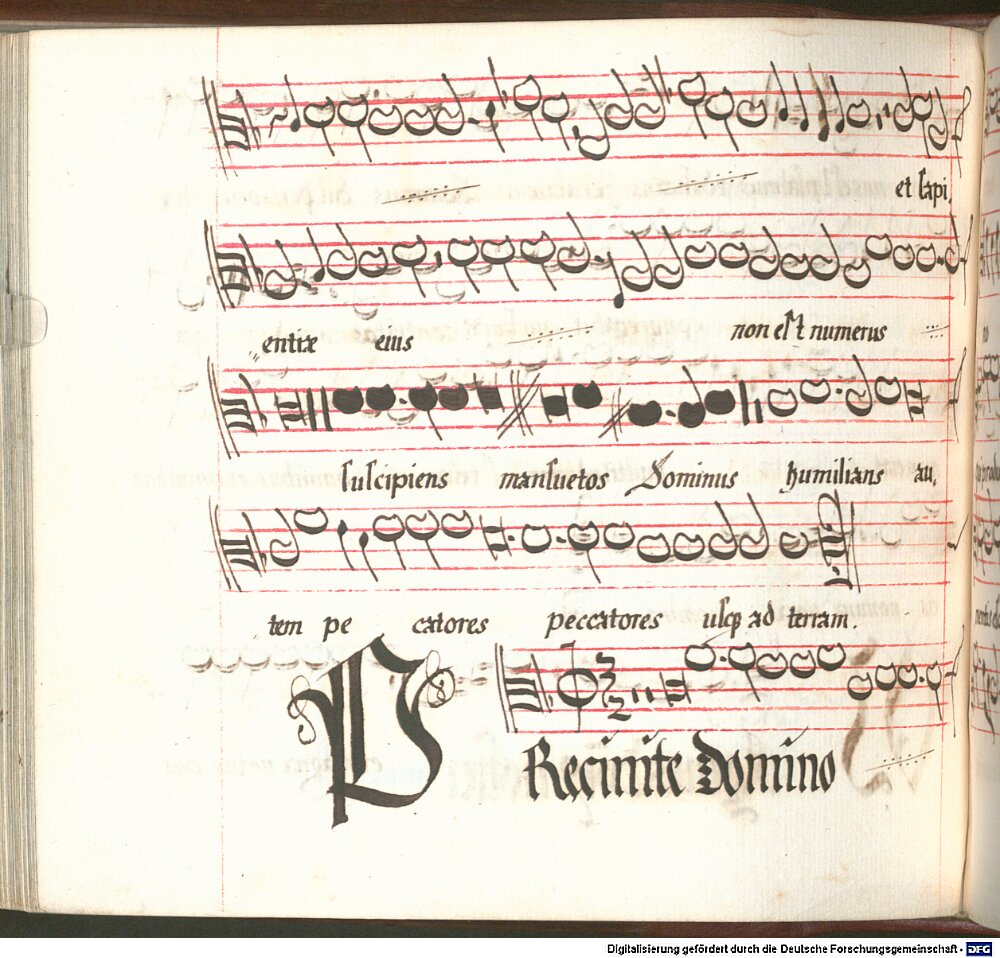 et sapi,
entiæ eius non est numerus
suscipiens mansuetos Dominus humilians au,
tem pe catores peccatores usq ad terram.
PRecinite Domino
Digitalisierung gefördert durch die Deutsche Forschungsgemeinschaft - DFG